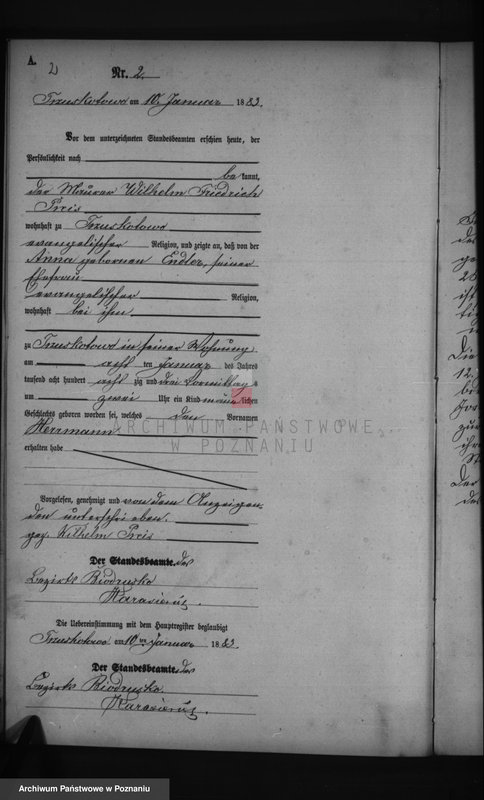 A.
2
Nr. 2.
Truskotowo am 10. Januar 1883.
Vor dem unterzeichneten Standesbeamten erschien heute, der
Persönlichkeit nach
bekannt,
der Maurer Wilhelm Friedrich
Preis
wohnhaft zu Truskotowo
evangelischer Religion, und zeigte an, daß von der
Anna gebornen Endler, seiner
Ehefrau
evangelischer Religion,
wohnhaft bei ihm
zu Truskotowo in seiner Wohnung
am acht ten Januar des Jahres
tausend acht hundert acht zig und drei Vormittags
um zwei Uhr ein Kind männlichen
Geschlechts geboren worden sei, welches den Vornamen
Herrmann
erhalten habe
Vorgelesen, genehmigt und von dem Anzeigen-
den unterschrieben.
gez. Wilhelm Preis
Der Standesbeamte des
Bezirks Biedrusko
Die Uebereinstimmung mit dem Hauptregister beglaubigt
Truskotowo am 10ten Januar 1883.
Der Standesbeamte des
Bezirks Biedrusko
ARCHIWUM PAŃSTWOWE
W POZNANIU
Archiwum Państwowe w Poznaniu